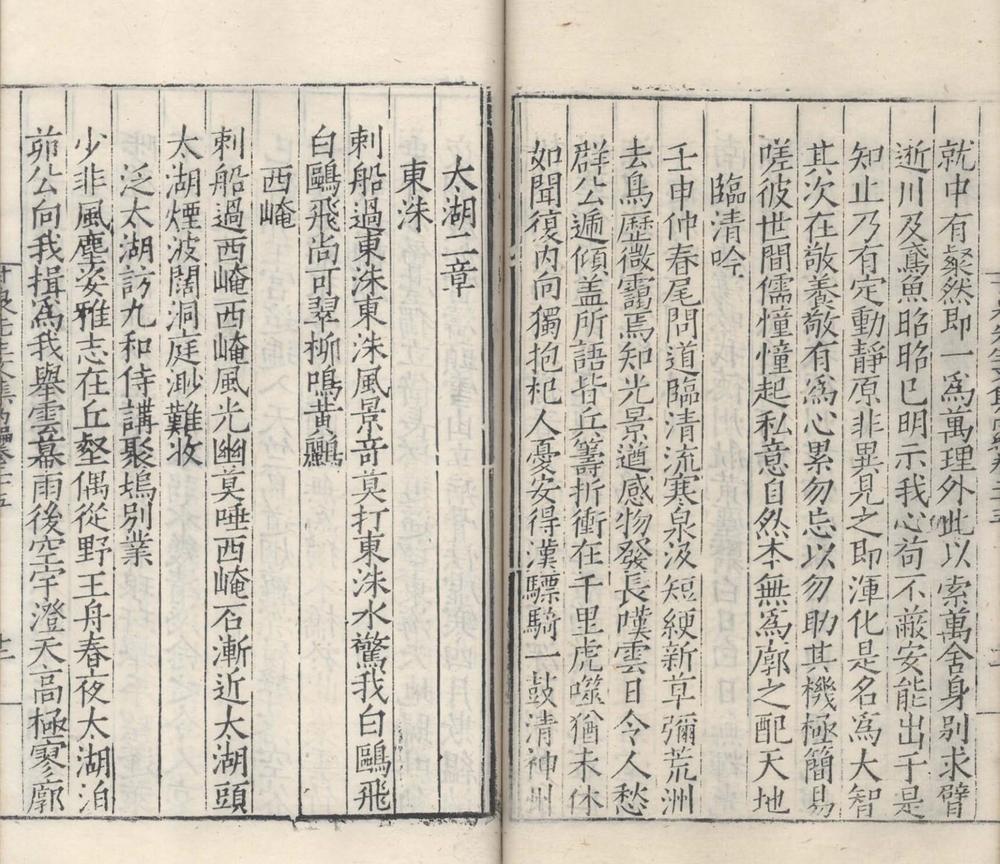 就中有粲然即一為萬理外此以索萬舍身別求臂
逝川及鳶魚昭昭已明示我心苟不蔽安能出于是
知止乃有定動靜原非異見之即渾化是名為大智
其次在敬養敬有為心累勿忘以勿助其機極簡易
嗟彼世間儒憧憧起私意自然本無為廓之配天地
臨清吟
壬申仲春尾問道臨清流寒泉汲短綆新草彌荒洲
去鳥歷微靄焉知光景遒感物發長嘆雲日令人愁
群公遞傾盖所語皆丘籌折衝在千里虎噬猶未休
如聞復內向獨抱杞人憂安得漢驃騎一鼓清神州
太湖二章
東洙
刺船過東洙東洙風景奇莫打東洙水驚我白鷗飛
白鷗飛尚可翠柳鳴黃鸝
西崦
刺船過西崦西崦風光幽莫唾西崦石漸近太湖頭
太湖煙波闊洞庭渺難收
泛太湖訪九和侍講聚塢別業
少非風塵姿雅志在丘壑偶從野王舟春夜太湖泊
茆公向我揖為我舉雲幕雨後空宇澄天高極寥廓